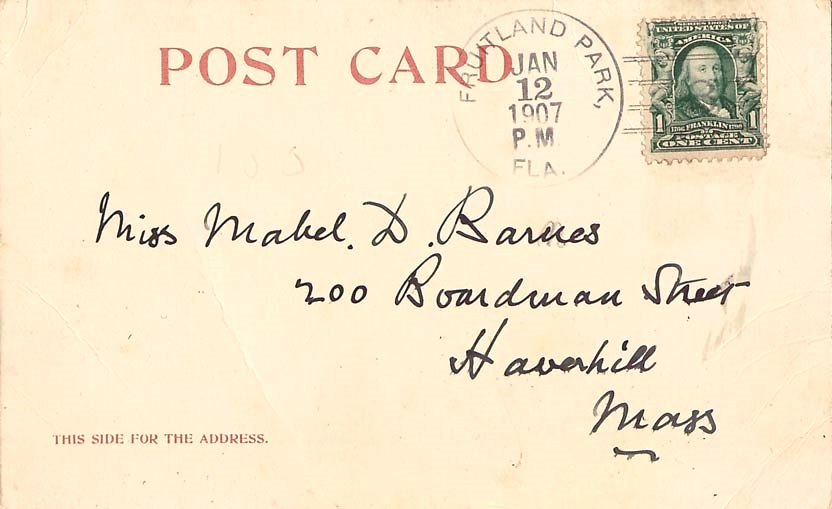 POST CARD
FRUITLAND PARK,
JAN
12
1907
P.M.
FLA.
SERIES 1902
UNITED STATES OF
AMERICA
1 1706 FRANKLIN 1790 1
POSTAGE
ONE CENT
Miss Mabel. D. Barnes
200 Boardman Street
Haverhill
Mass
THIS SIDE FOR THE ADDRESS.